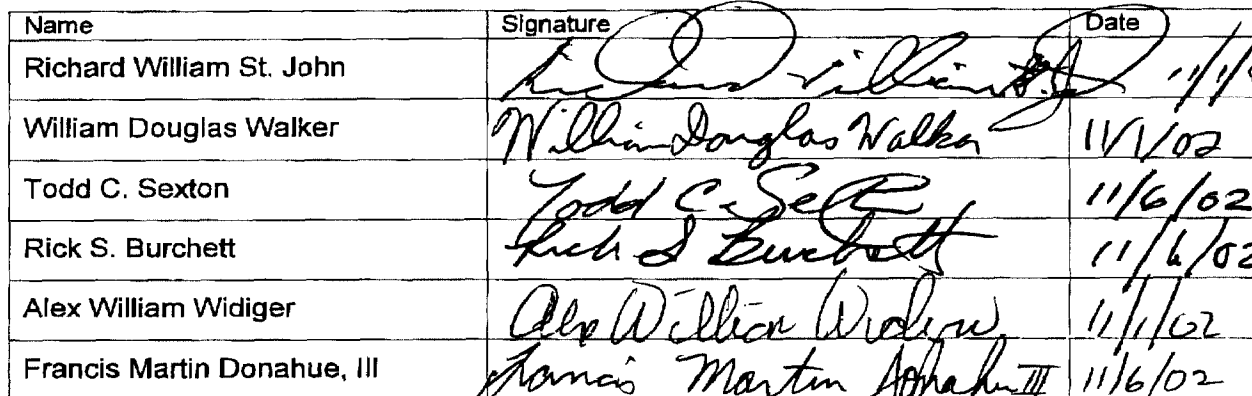 Name Signature Date
Richard William St. John Richard William St. J 11/1/
William Douglas Walker William Douglas Walker 11/1/02
Todd C. Sexton Todd C. Sexton 11/6/02
Rick S. Burchett Rick S Burchett 11/6/02
Alex William Widiger Alex William Widiger 11/1/02
Francis Martin Donahue, III Francis Martin Donahue III 11/6/02